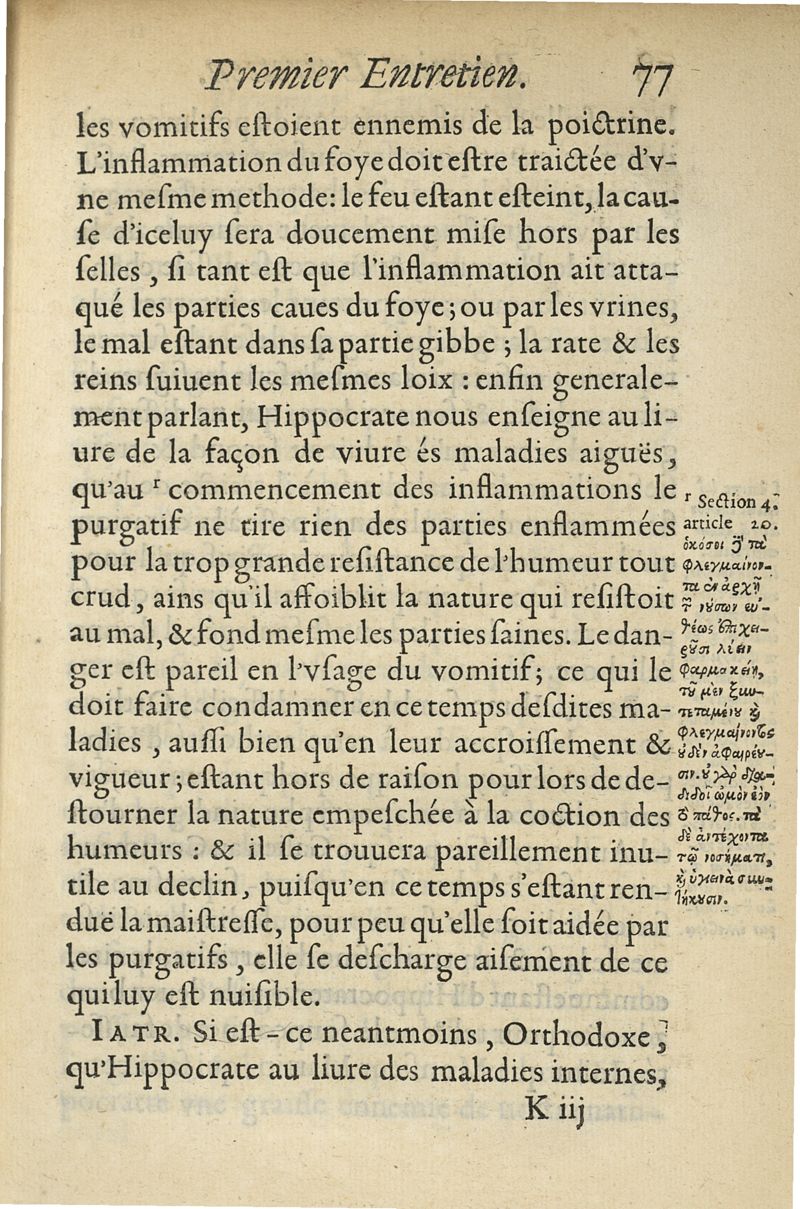 Premier Entretien. 77
les vomitifs eſtoient ennemis de la poictrine.
L'inflammation du foye doit eſtre traictée d'v-
ne meſme methode: le feu eſtant eſteint, la cau-
ſe d'iceluy ſera doucement miſe hors par les
ſelles, ſi tant eſt que l'inflammation ait atta-
qué les parties caues du foye; ou par les vrines,
le mal eſtant dans ſa partie gibbe; la rate & les
reins ſuiuent les meſmes loix: enfin generale-
ment parlant, Hippocrate nous enſeigne au li-
ure de la façon de viure és maladies aiguës,
qu'au r commencement des inflammations le
purgatif ne tire rien des parties enflammées
pour la trop grande reſiſtance de l'humeur tout
crud, ains qu'il affoiblit la nature qui reſiſtoit
au mal, & fond meſme les parties ſaines. Le dan-
ger eſt pareil en l'vſage du vomitif; ce qui le
doit faire condamner en ce temps deſdites ma-
ladies, auſſi bien qu'en leur accroiſſement &
vigueur; eſtant hors de raiſon pour lors de de-
ſtourner la nature empeſchée à la coction des
humeurs: & il ſe trouuera pareillement inu-
tile au declin, puiſqu'en ce temps s'eſtant ren-
duë la maiſtreſſe, pour peu qu'elle ſoit aidée par
les purgatifs, elle ſe deſcharge aiſement de ce
qui luy eſt nuiſible.
IATR. Si eſt-ce neantmoins, Orthodoxe,
qu'Hippocrate au liure des maladies internes,
K iij
r Section 4.
article 20.
ὁκόσοι
φλεγμαίνον-
τα ἐν ἀρχῇ
νούσων εὐ-
θέως ἐπιχει-
ρέουσι λύειν
φαρμακείῃ,
τοῦ μὲν ξυν-
τεταμένου καὶ
φλεγμαίνοντος
οὐδὲν ἀφαιρέου-
σιν. οὐ γὰρ
διδοῖ ὠμὸν ἐὸν
τὸ πάθος. τὰ
δὲ ἀντέχοντα
τῷ νοσήματι,
καὶ ὑγιεινὰ συν-
τήκουσιν.